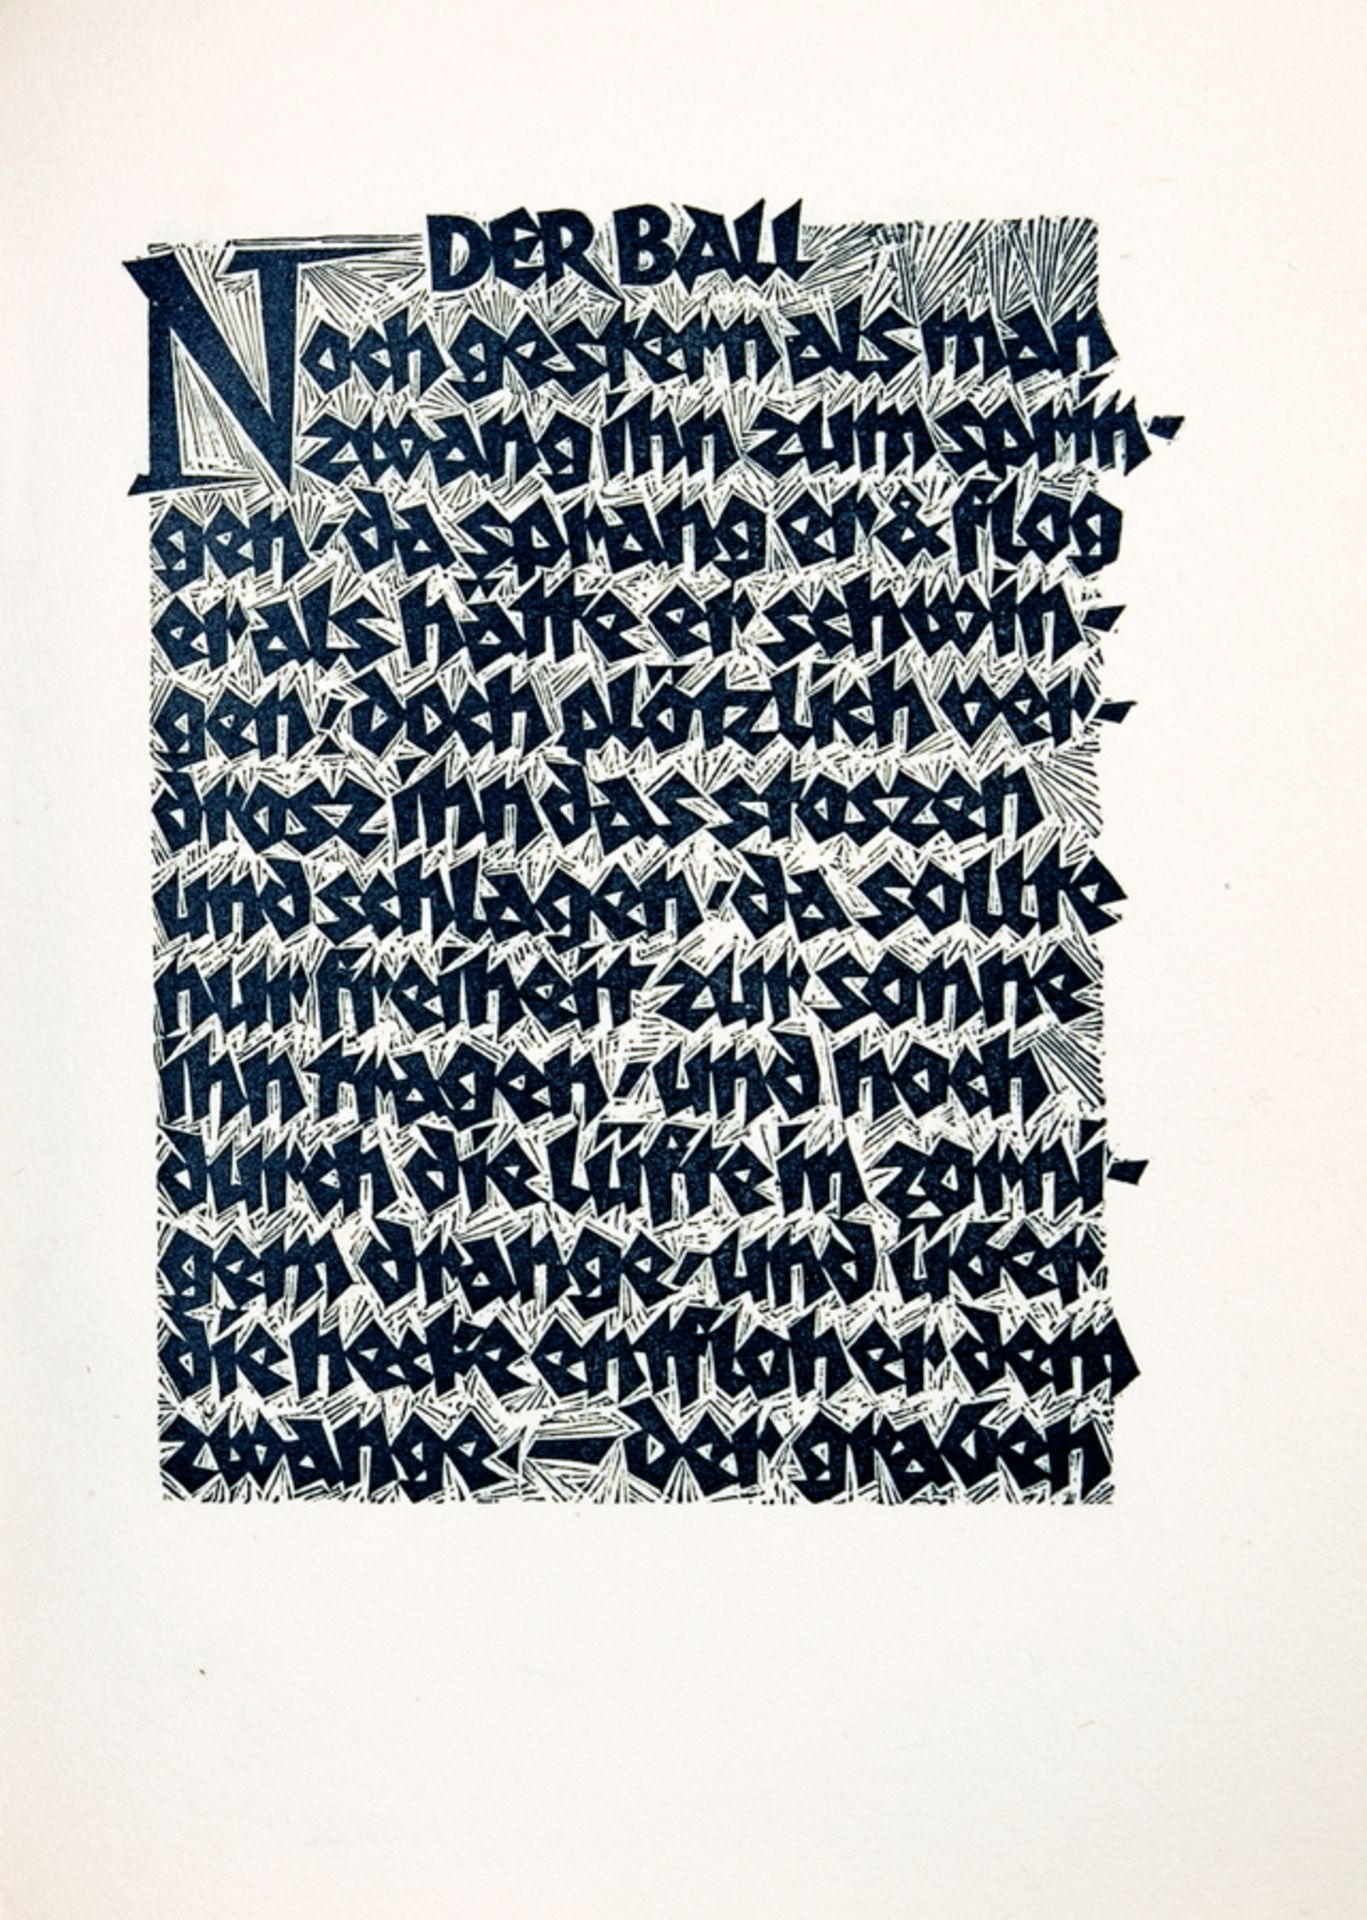 DER BALL
Noch gestern als man
zwang ihn zum sprin-
gen, da sprang er & flog
er als hätte er schwin-
gen; doch plötzlich ver-
drosz ihn das stoszen
und schlagen, da sollte
nur freiheit zur sonne
ihn tragen, und hoch
durch die lüfte in zorni-
gem drange, und über
die hecke entfloh er dem
zwange. — der graben